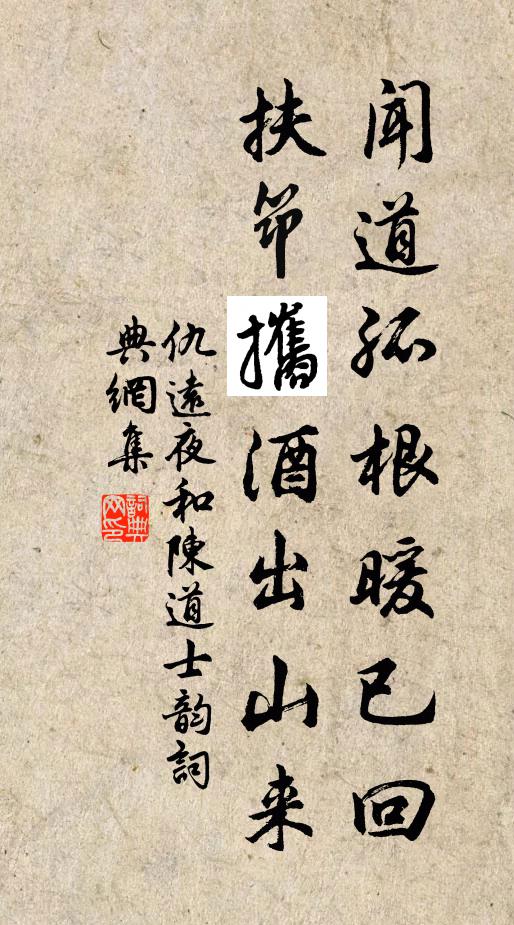 闻道孤根暖已回
扶筇攜酒出山来
仇遠夜和陳道士韵詞
典網集
詞典网印